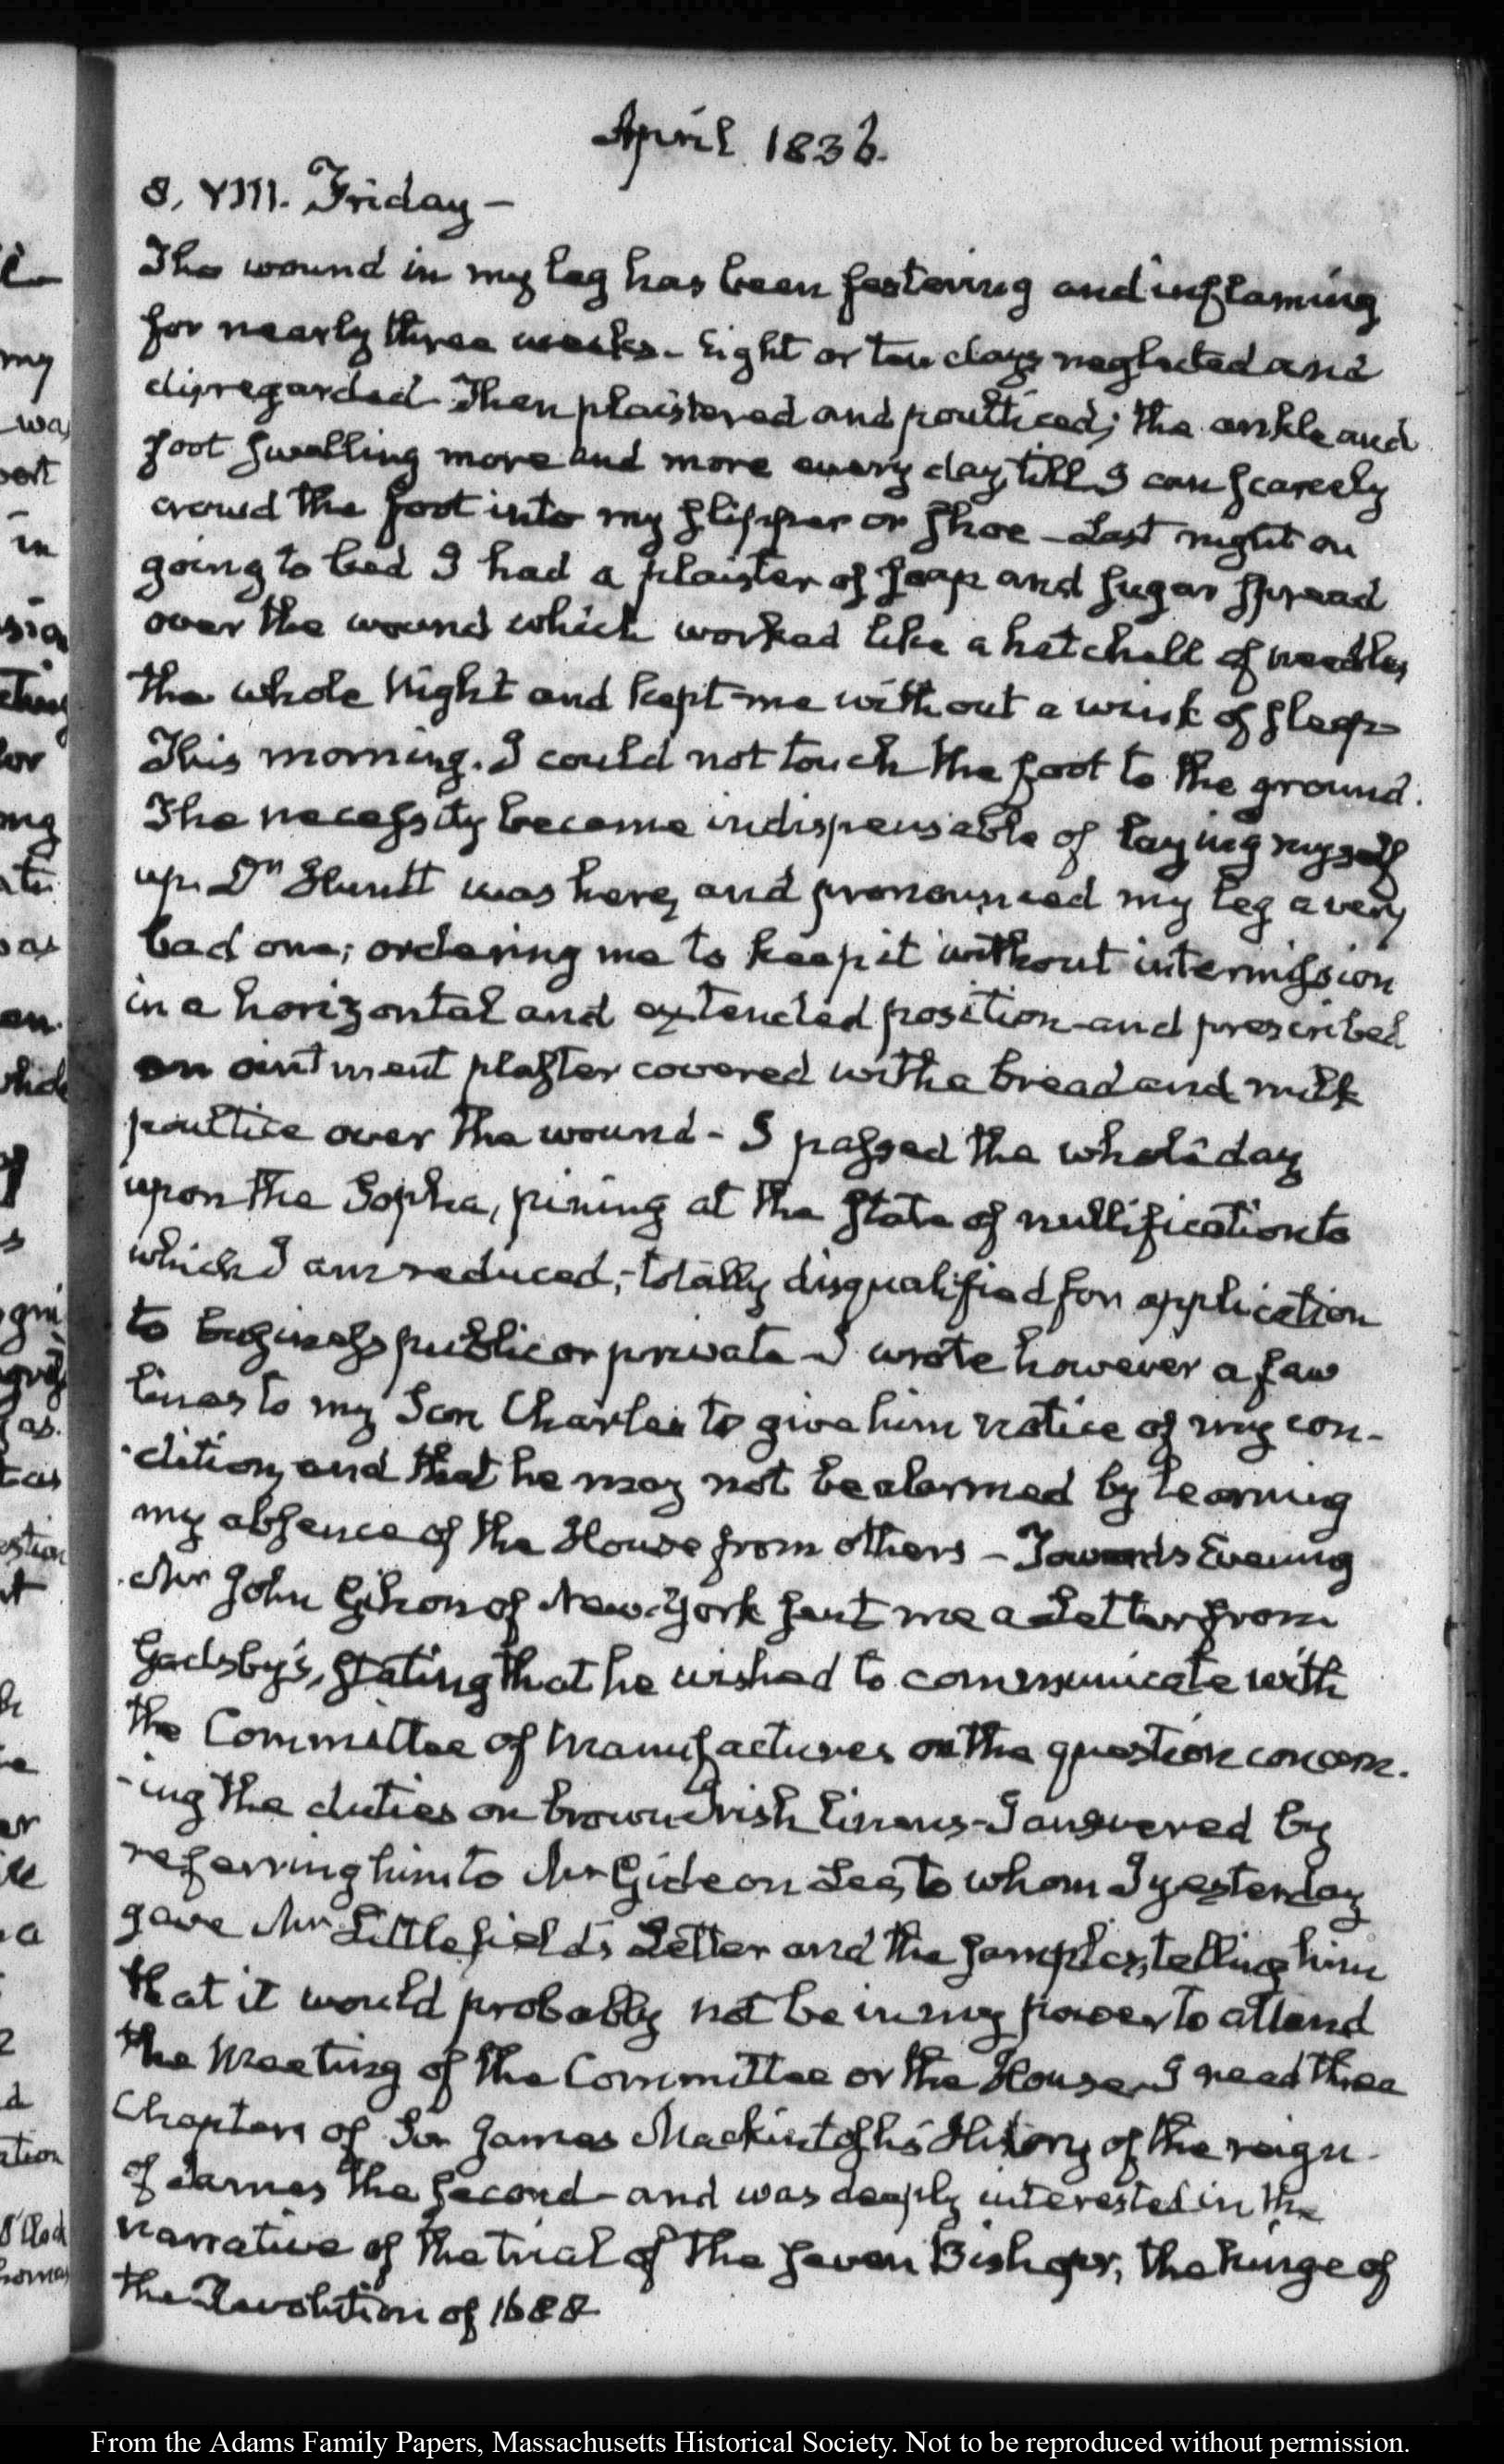 April 1836.
8. VIII. Friday –
The wound in my leg has been festering and inflaming
for nearly three weeks – Eight or ten days neglected and
disregarded Then plaistered and poulticed; the ankle and
foot swelling more and more every day, till I can scarcely
crowd the foot into my slipper or shoe – Last night on
going to bed I had a plaister of soap and sugar spread
over the wound which worked like a hatchell of needles
the whole Night and kept me without a wink of sleep
This morning. I could not touch the foot to the ground.
The necessity became indispensable of laying myself
up. Dr Huntt was here, and pronounced my leg a very
bad one; ordering me to keep it without intermission
in a horizontal and extended position and prescribed
an ointment plaster covered with a bread and milk
poultice over the wound – I passed the whole day
upon the Sopha, pining at the state of nullification to
which I am reduced; totally disqualified for application
to business public or private – I wrote however a few
lines to my Son Charles to give him notice of my con-
-dition, and that he may not be alarmed by learning
my absence of the House from others – Towards Evening
Mr John Gihon of New-York sent me a Letter from
Gadsby's, stating that he wished to communicate with
the Committee of Manufactures on the question concern-
-ing the duties on brown Irish linens – I answered by
referring him to Mr Gideon Lee, to whom I yesterday
gave Mr Littlefield's Letter and the samples, telling him
that it would probably not be in my power to attend
the Meeting of the Committee or the House. I read three
Chapters of Sir James Mackintosh's History of the reign
of James the second – and was deeply interested in the
narrative of the trial of the seven Bishops, the hinge of
the Revolution of 1688
From the Adams Family Papers, Massachusetts Historical Society. Not to be reproduced without permission.